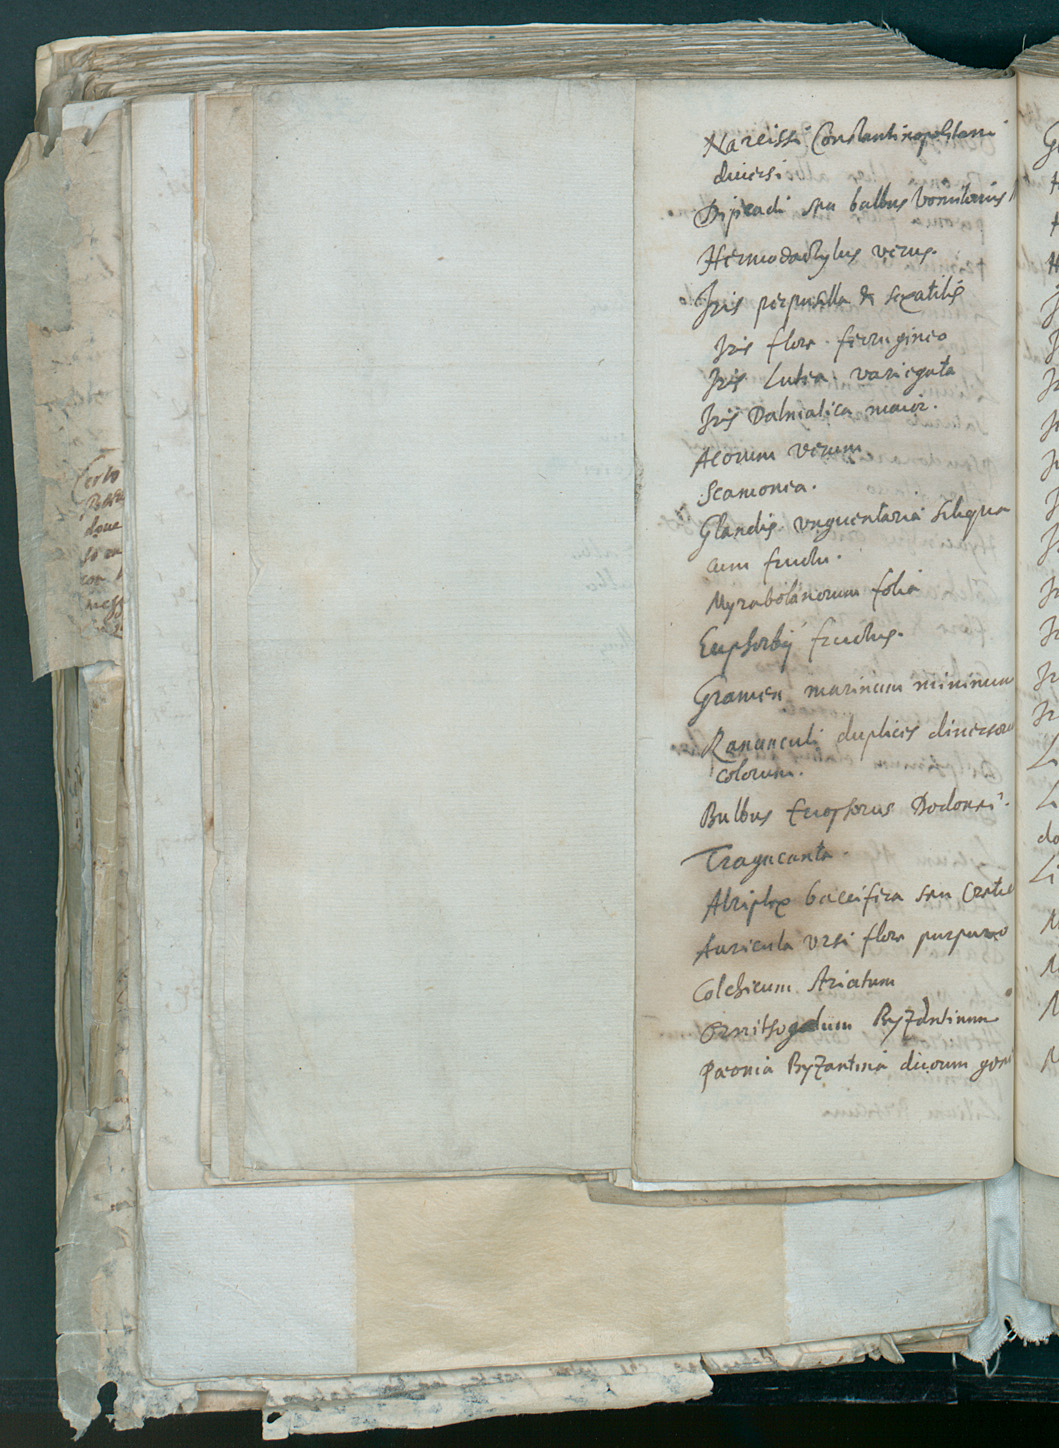 Narcissi Constantinopolitani
diuersi
Dipcadi seu bulbus vomitorius
Hermodactylus verus.
Iris perpusilla & sexatilis
Iris flore ferrugineo
Iris Lutea variegata
Iris Dalmatica maior.
Acorum verum
Scamonea.
Glandis vnguentaria siliqua
cum fructu.
Myrabolanorum folia
Euphorbij fructus.
Gramen marinum minimum
Ranunculi duplices diuersoru
colorum.
Bulbus Eriophorus Dodonei.
Tragacanta.
Atriplex baccifera seu Cretic
Auricula vrsi flore purpureo
Colchicum striatum
Ornithogalum Byzantinum
Pæonia Byzantina duorum gen